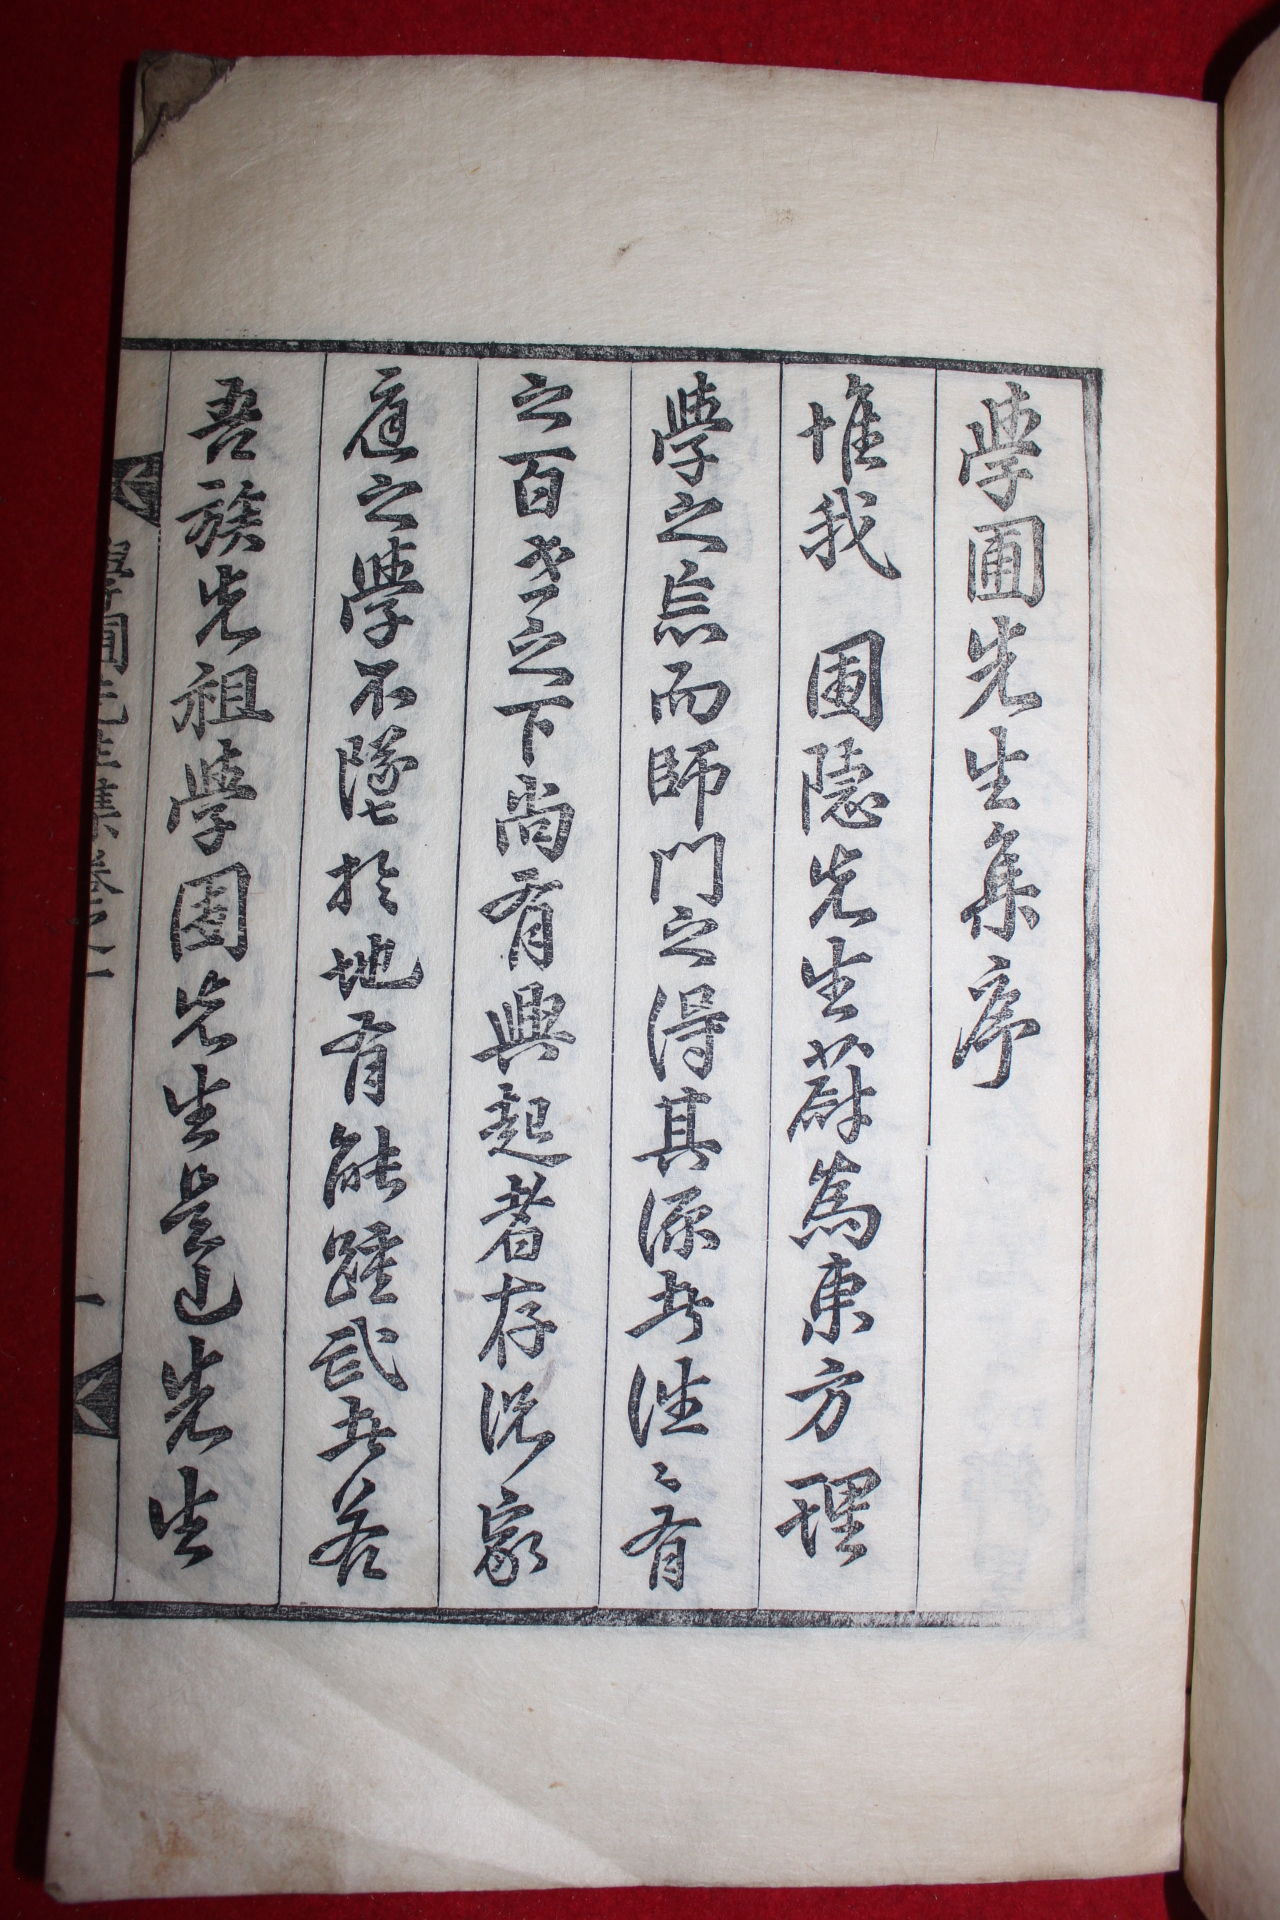 學圃先生集序
惟我 圃隱先生蔚爲東方理
學之宗而師門之得其源者往〻有
之百世之下尚有興起者存況家
庭之學不墜於地有能踵武者若
吾族先祖學圃先生是已先生
學圃先生集卷之一 一